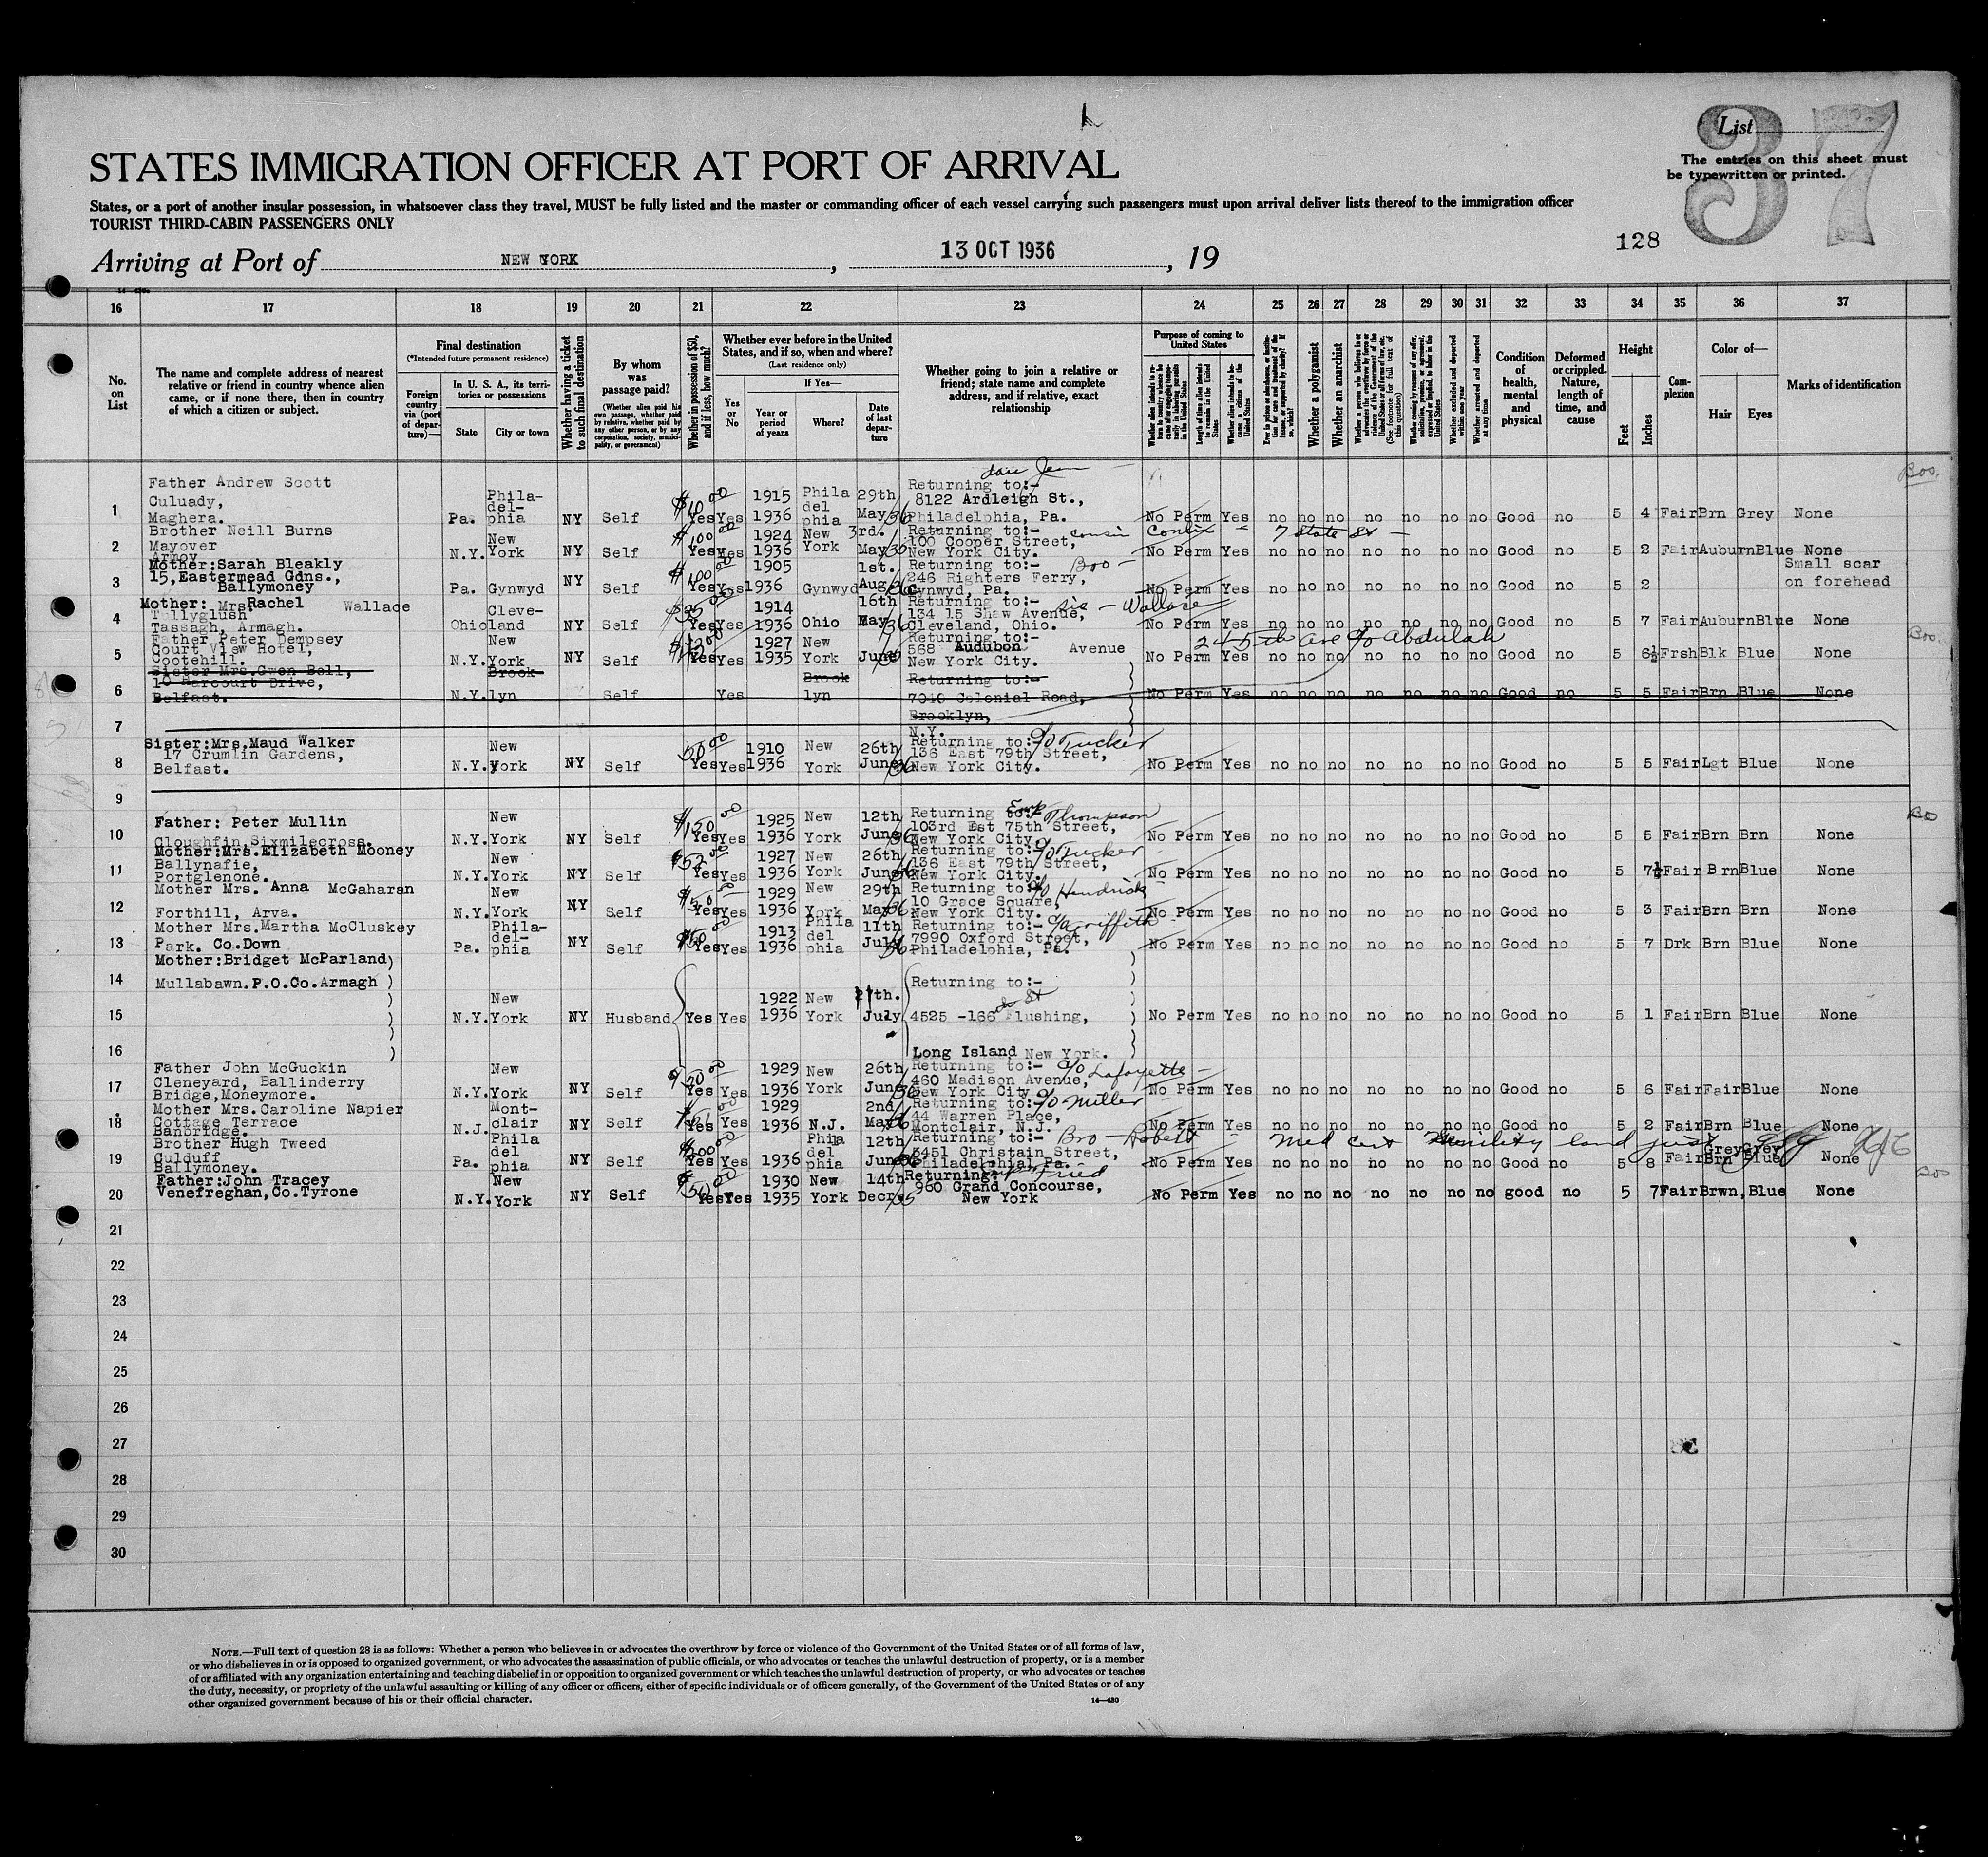 List
37
STATES IMMIGRATION OFFICER AT PORT OF ARRIVAL
The entries on this sheet must
be typewritten or printed.
States, or a port of another insular possession, in whatsoever class they travel, MUST be fully listed and the master or commanding officer of each vessel carrying such passengers must upon arrival deliver lists thereof to the immigration officer
TOURIST THIRD-CABIN PASSENGERS ONLY
128
Arriving at Port of NEW YORK, 13 OCT 1936, 19
16 17 18 19 20 21 22 23 24 25 26 27 28 29 30 31 32 33 34 35 36 37
No. on List
The name and complete address of nearest relative or friend in country whence alien came, or if none there, then in country of which a citizen or subject.
Final destination
(*Intended future permanent residence)
Foreign country via (port of departure)—
In U. S. A., its territories or possessions
State
City or town
Whether having a ticket to such final destination
By whom was passage paid?
(Whether alien paid his own passage, whether paid by relative, whether paid by any other person, or by any corporation, society, municipality, or government)
Whether in possession of $50, and if less, how much?
Whether ever before in the United States, and if so, when and where?
(Last residence only)
Yes or No
If Yes—
Year or period of years
Where?
Date of last departure
Whether going to join a relative or friend; state name and complete address, and if relative, exact relationship
Purpose of coming to United States
Length of time alien intends to remain in the United States
Whether alien intends to become a citizen of the United States
Whether a polygamist
Whether an anarchist
(See footnote for full text of this question)
Whether excluded and deported within one year
Whether arrested and deported at any time
Condition of health, mental and physical
Deformed or crippled. Nature, length of time, and cause
Height
Feet
Inches
Complexion
Color of—
Hair
Eyes
Marks of identification
1 Father Andrew Scott Culuady, Maghera. Pa. Philadelphia NY Self $100 00 Yes Yes 1915 1936 Philadelphia 29th May/36 Returning to:- 8122 Ardleigh St., Philadelphia, Pa. No Perm Yes no no no no no no no Good no 5 4 Fair Brn Grey None
2 Brother Neill Burns Mayover Armoy N.Y. New York NY Self $100 00 Yes Yes 1924 1936 New York 3rd. May Returning to:- cousin 100 Cooper Street, New York City. 7 State St No Perm Yes no no no no no no no Good no 5 2 Fair Auburn Blue None
3 Mother:Sarah Bleakly 15, Eastermead Gdns., Ballymoney Pa. Cynwyd NY Self $100 00 Yes Yes 1905 1936 Gynwyd 1st. Aug Returning to:- 246 Righters Ferry, Cynwyd, Pa. No Perm Yes no no no no no no no Good no 5 2 Small scar on forehead
4 Mother: Mrs Rachel Wallace Tullyglush Tassagh, Armagh. Ohio Cleveland NY Self Yes Yes 1914 1936 Ohio 16th May/36 Returning to:- sis - Wallace 134 15 Shaw Avenue, Cleveland, Ohio. No Perm Yes no no no no no no no Good no 5 7 Fair Auburn Blue None
5 Father Peter Dempsey Court View Hotel, Cootehill. N.Y. New York NY Self Yes Yes 1927 1935 New York June Returning to:- 568 Audubon Avenue New York City. 24 5th Ave c/o Abdulah No Perm Yes no no no no no no no Good no 5 6½ Frsh Blk Blue None
6 Sister Mrs.Gwen Bell, 10 Harcourt Drive, Belfast. N.Y. Brooklyn Self Yes Brooklyn Returning to:- 7040 Colonial Road, Brooklyn, N.Y. No Perm Yes no no no no no no no Good no 5 5 Fair Brn Blue None
7
8 Sister:Mrs.Maud Walker 17 Crumlin Gardens, Belfast. N.Y. New York NY Self 50 00 Yes Yes 1910 1936 New York 26th June/36 Returning to:- c/o Tucker 136 East 79th Street, New York City. No Perm Yes no no no no no no no Good no 5 5 Fair Lgt Blue None
9
10 Father: Peter Mullin Cloughfin, Sixmilecross. N.Y. New York NY Self $150 00 Yes Yes 1925 1936 New York 12th June/36 Returning to:- Thompson 103rd Est 75th Street, New York City. No Perm Yes no no no no no no no Good no 5 5 Fair Brn Brn None
11 Mother:Mrs.Elizabeth Mooney Ballynafie, Portglenone. N.Y. New York NY Self $52 00 Yes Yes 1927 1936 New York 26th June Returning to:- c/o Tucker 136 East 79th Street, New York City. No Perm Yes no no no no no no no Good no 5 7½ Fair Brn Blue None
12 Mother Mrs. Anna McGaharan Forthill, Arva. N.Y. New York NY Self $50 00 Yes Yes 1929 1936 New York 29th May/36 Returning to:- c/o Hendrick 10 Grace Square, New York City. No Perm Yes no no no no no no no Good no 5 3 Fair Brn Brn None
13 Mother Mrs.Martha McCluskey Park. Co.Down Pa. Philadelphia NY Self $50 Yes Yes 1913 1936 Philadelphia 11th July/36 Returning to:- c/o Griffith 7990 Oxford Street, Philadelphia, Pa. No Perm Yes no no no no no no no Good no 5 7 Drk Brn Blue None
14 Mother:Bridget McParland) Mullabawn.P.O.Co.Armagh ) Returning to:-
15 N.Y. New York NY Husband Yes Yes 1922 1936 New York 27th. July 4525 -166 St Flushing, No Perm Yes no no no no no no no Good no 5 1 Fair Brn Blue None
16 Long Island New York.
17 Father John McGuckin Cleneyard, Ballinderry Bridge, Moneymore. N.Y. New York NY Self $50 00 Yes Yes 1929 1936 New York 26th June/36 Returning to:- c/o Lafayette 460 Madison Avenue, New York City. No Perm Yes no no no no no no no Good no 5 6 Fair Fair Blue None
18 Mother Mrs.Caroline Napier Cottage Terrace Banbridge. N.J. Montclair NY Self Yes Yes 1929 1936 N.J. 2nd May/36 Returning to:- c/o Miller 44 Warren Place, Montclair, N.J. No Perm Yes no no no no no no no Good no 5 2 Fair Brn Blue None
19 Brother Hugh Tweed Culduff Ballymoney. Pa. Philadelphia NY Self $200 00 Yes Yes 1936 Philadelphia 12th June Returning to:- Bro - Robert 3451 Christain Street, Philadelphia, Pa. Med Cert No Perm Yes no no no no no no no Good no 5 8 Fair Grey Grey Brn Blue None
20 Father:John Tracey Venefreghan, Co.Tyrone N.Y. New York NY Self $50 00 Yes Yes 1930 1935 New York 14th Decr./35 Returning:- Fried 960 Grand Concourse, New York No Perm Yes no no no no no no no good no 5 7 Fair Brwn, Blue None
21
22
23
24
25
26
27
28
29
30
NOTE.—Full text of question 28 is as follows: Whether a person who believes in or advocates the overthrow by force or violence of the Government of the United States or of all forms of law,
or who disbelieves in or is opposed to organized government, or who advocates the assassination of public officials, or who advocates or teaches the unlawful destruction of property, or is a member
of or affiliated with any organization entertaining and teaching disbelief in or opposition to organized government or which teaches the unlawful destruction of property, or who advocates or teaches
the duty, necessity, or propriety of the unlawful assaulting or killing of any officer or officers, either of specific individuals or of officers generally, of the Government of the United States or of any
other organized government because of his or their official character.
14—430